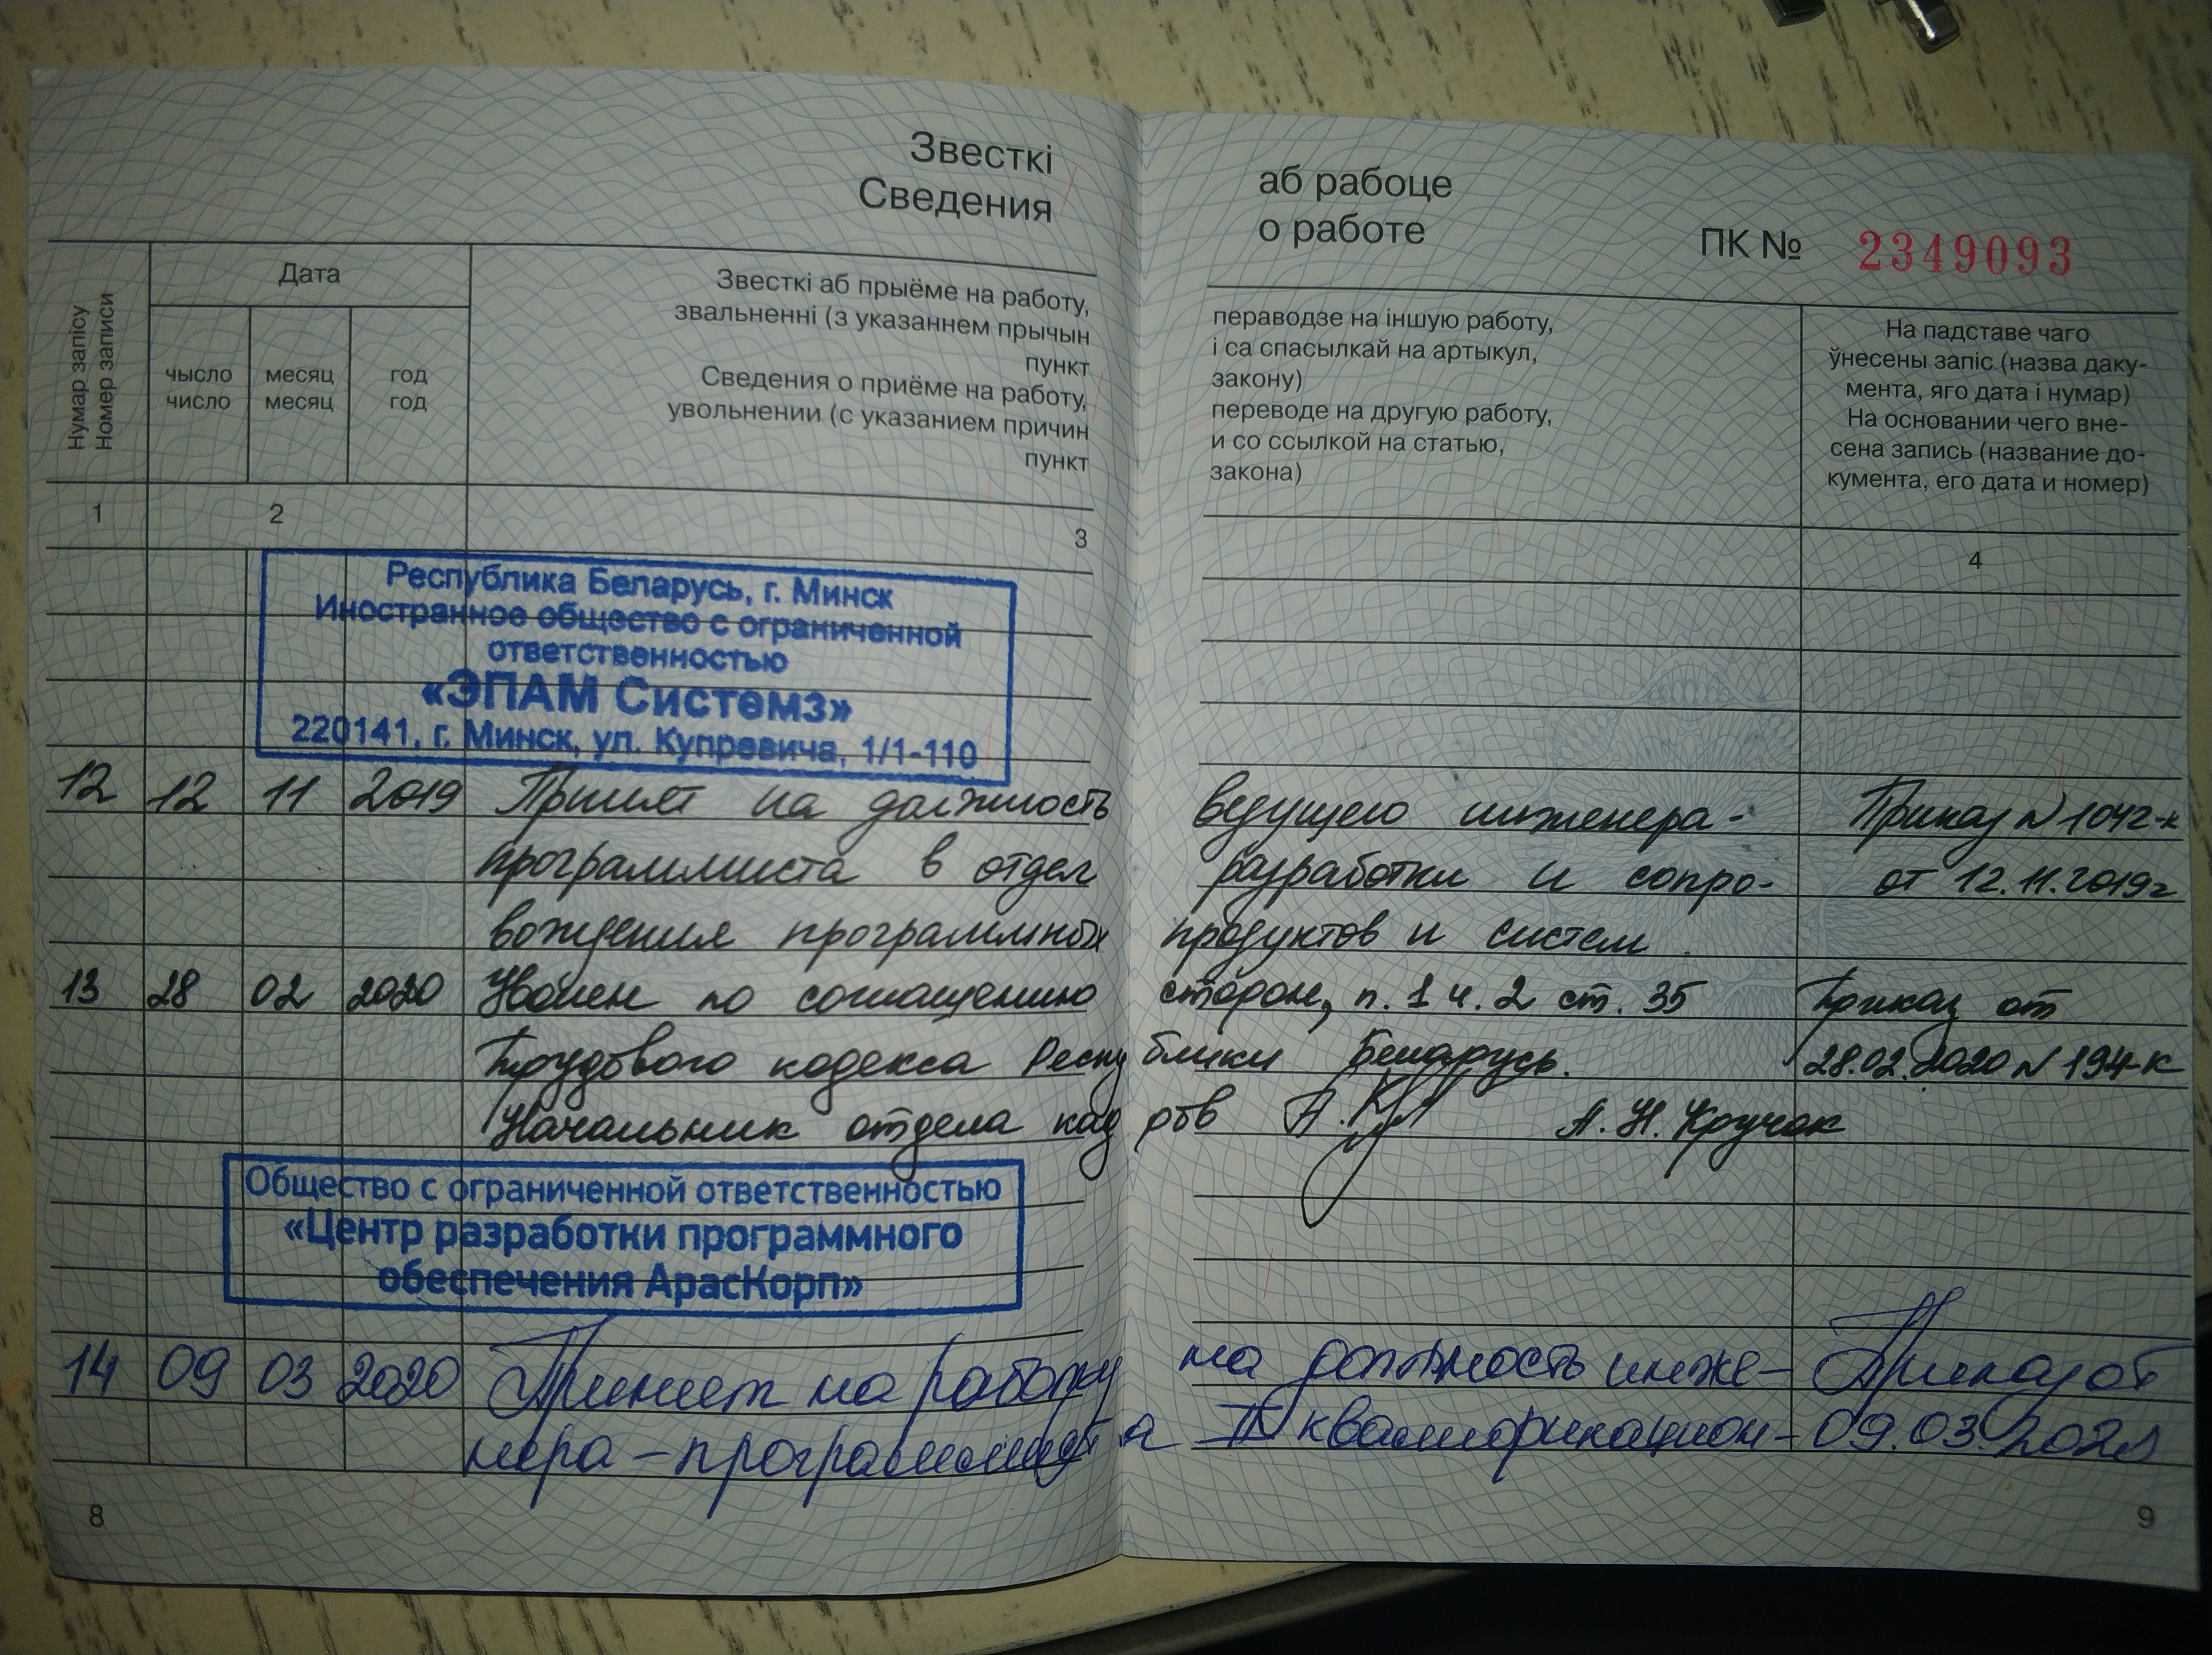 Звесткі
Сведения
аб рабоце
о работе
ПК № 2349093
Нумар запісу
Номер записи
Дата
чысло
число
месяц
месяц
год
год
Звесткі аб прыёме на работу,
звальненні (з указаннем прычын
пункт
Сведения о приёме на работу,
увольнении (с указанием причин
пункт
пераводзе на іншую работу,
і са спасылкай на артыкул,
закону)
переводе на другую работу,
и со ссылкой на статью,
закона)
На падставе чаго
ўнесены запіс (назва даку-
мента, яго дата і нумар)
На основании чего вне-
сена запись (название до-
кумента, его дата и номер)
1 2 3 4
Республика Беларусь, г. Минск
Иностранное общество с ограниченной
ответственностью
«ЭПАМ Системз»
220141, г. Минск, ул. Купревича, 1/1-110
12 12 11 2019 Принят на должность ведущего инженера- Приказ N 1042-к
программиста в отдел разработки и сопро- от 12.11.2019г
вождения программных продуктов и систем.
13 28 02 2020 Уволен по соглашению сторон, п. 1 ч. 2 ст. 35 Приказ от
Трудового кодекса Республики Беларусь. 28.02.2020 N 194-К
Начальник отдела кадров А.Н. Кручок
Общество с ограниченной ответственностью
«Центр разработки программного
обеспечения АрасКорп»
14 09 03 2020 Принят на работу на должность инже- Приказ от
нера-программиста II квалификацион- 09.03.2020
8
9